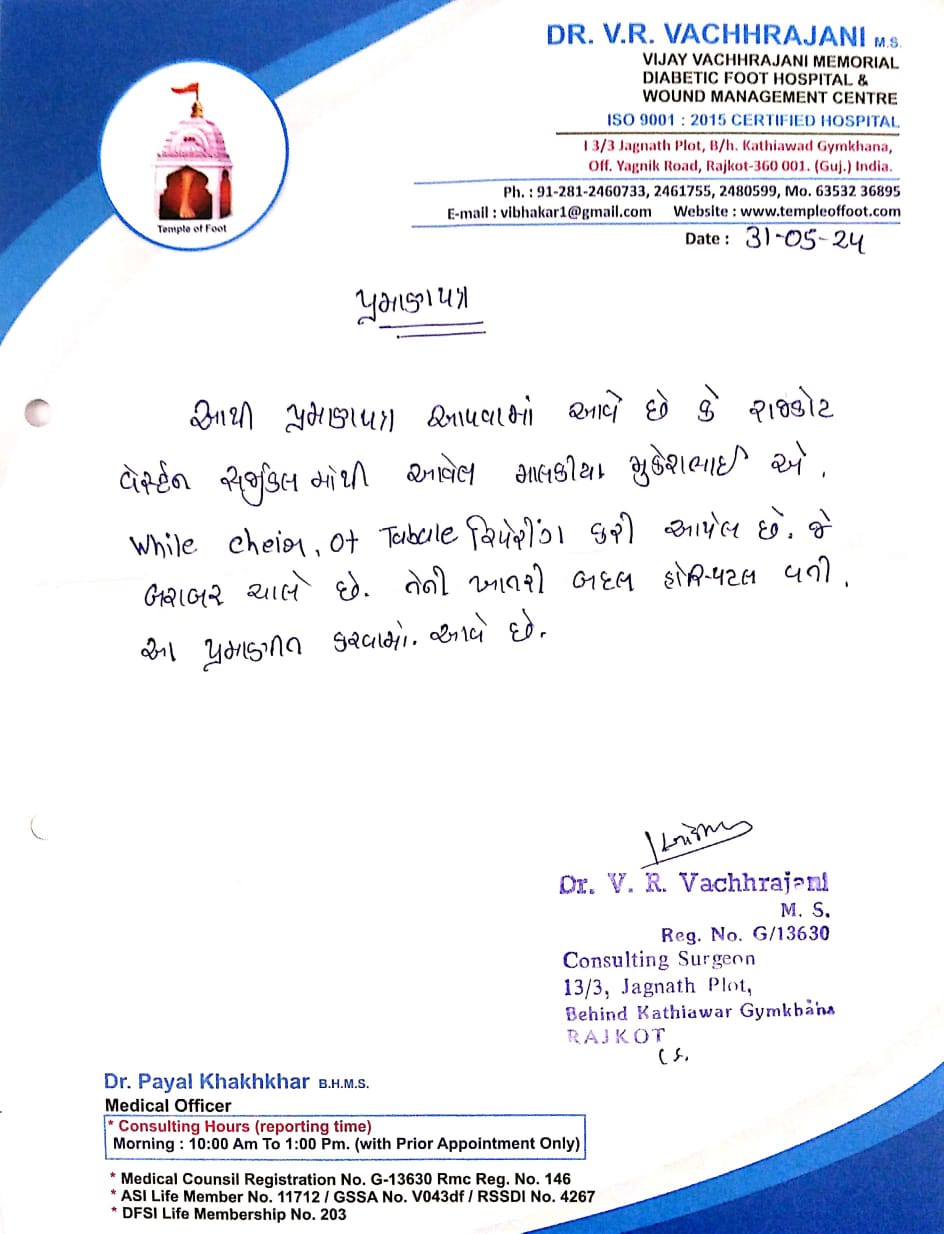 DR. V.R. VACHHRAJANI M.S.
VIJAY VACHHRAJANI MEMORIAL
DIABETIC FOOT HOSPITAL &
WOUND MANAGEMENT CENTRE
ISO 9001 : 2015 CERTIFIED HOSPITAL
13/3 Jagnath Plot, B/h. Kathiawad Gymkhana,
Off. Yagnik Road, Rajkot-360 001. (Guj.) India.
Ph. : 91-281-2460733, 2461755, 2480599, Mo. 63532 36895
E-mail : vibhakar1@gmail.com Website : www.templeoffoot.com
Temple of Foot
Date : 31-05-24
પ્રમાણપત્ર
આથી પ્રમાણપત્ર આપવામાં આવે છે કે રાજકોટ
વેસ્ટર્ન સર્જીકલ માંથી આવેલ માલકીયા મુકેશભાઈ એ.
While cheior, of Tabale રિપેરીંગ કરી આપેલ છે. જે
બરાબર ચાલે છે. તેની ખાતરી બદલ હોસ્પિટલ વતી.
આ પ્રમાણીત કરવામાં. આવે છે.
Dr. V. R. Vachhrajani
M. S.
Reg. No. G/13630
Consulting Surgeon
13/3, Jagnath Plot,
Behind Kathiawar Gymkhana
RAJKOT
Dr. Payal Khakhkhar B.H.M.S.
Medical Officer
* Consulting Hours (reporting time)
Morning : 10:00 Am To 1:00 Pm. (with Prior Appointment Only)
* Medical Counsil Registration No. G-13630 Rmc Reg. No. 146
* ASI Life Member No. 11712 / GSSA No. V043df / RSSDI No. 4267
* DFSI Life Membership No. 203